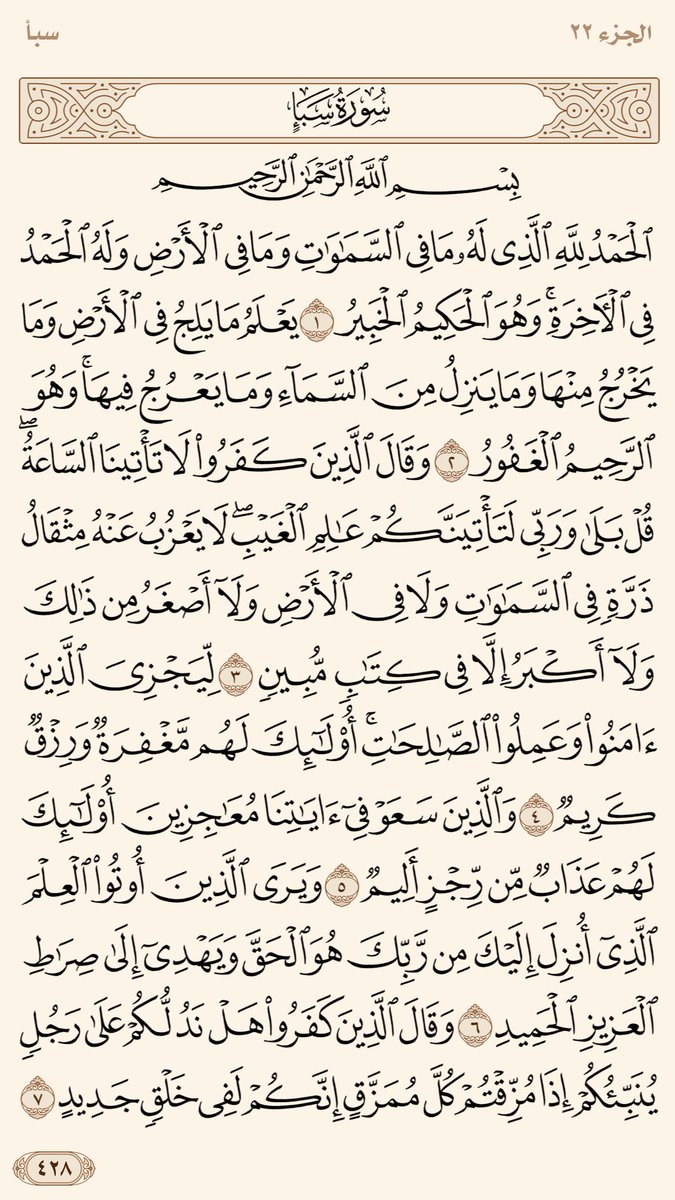 الجزء ٢٢
سبأ
سُورَةُ سَبَإٍ
بِسْمِ ٱللَّهِ ٱلرَّحْمَٰنِ ٱلرَّحِيمِ
ٱلْحَمْدُ لِلَّهِ ٱلَّذِى لَهُۥ مَا فِى ٱلسَّمَٰوَٰتِ وَمَا فِى ٱلْأَرْضِ وَلَهُ ٱلْحَمْدُ
فِى ٱلْءَاخِرَةِۚ وَهُوَ ٱلْحَكِيمُ ٱلْخَبِيرُ ١ يَعْلَمُ مَا يَلِجُ فِى ٱلْأَرْضِ وَمَا
يَخْرُجُ مِنْهَا وَمَا يَنزِلُ مِنَ ٱلسَّمَآءِ وَمَا يَعْرُجُ فِيهَاۚ وَهُوَ
ٱلرَّحِيمُ ٱلْغَفُورُ ٢ وَقَالَ ٱلَّذِينَ كَفَرُوا۟ لَا تَأْتِينَا ٱلسَّاعَةُۖ
قُلْ بَلَىٰ وَرَبِّى لَتَأْتِيَنَّكُمْ عَٰلِمِ ٱلْغَيْبِۖ لَا يَعْزُبُ عَنْهُ مِثْقَالُ
ذَرَّةٍ فِى ٱلسَّمَٰوَٰتِ وَلَا فِى ٱلْأَرْضِ وَلَآ أَصْغَرُ مِن ذَٰلِكَ
وَلَآ أَكْبَرُ إِلَّا فِى كِتَٰبٍ مُّبِينٍ ٣ لِّيَجْزِىَ ٱلَّذِينَ
ءَامَنُوا۟ وَعَمِلُوا۟ ٱلصَّٰلِحَٰتِۚ أُو۟لَٰٓئِكَ لَهُم مَّغْفِرَةٌ وَرِزْقٌ
كَرِيمٌ ٤ وَٱلَّذِينَ سَعَوْ فِىٓ ءَايَٰتِنَا مُعَٰجِزِينَ أُو۟لَٰٓئِكَ
لَهُمْ عَذَابٌ مِّن رِّجْزٍ أَلِيمٌ ٥ وَيَرَى ٱلَّذِينَ أُوتُوا۟ ٱلْعِلْمَ
ٱلَّذِىٓ أُنزِلَ إِلَيْكَ مِن رَّبِّكَ هُوَ ٱلْحَقَّ وَيَهْدِىٓ إِلَىٰ صِرَٰطِ
ٱلْعَزِيزِ ٱلْحَمِيدِ ٦ وَقَالَ ٱلَّذِينَ كَفَرُوا۟ هَلْ نَدُلُّكُمْ عَلَىٰ رَجُلٍ
يُنَبِّئُكُمْ إِذَا مُزِّقْتُمْ كُلَّ مُمَزَّقٍ إِنَّكُمْ لَفِى خَلْقٍ جَدِيدٍ ٧
٤٢٨